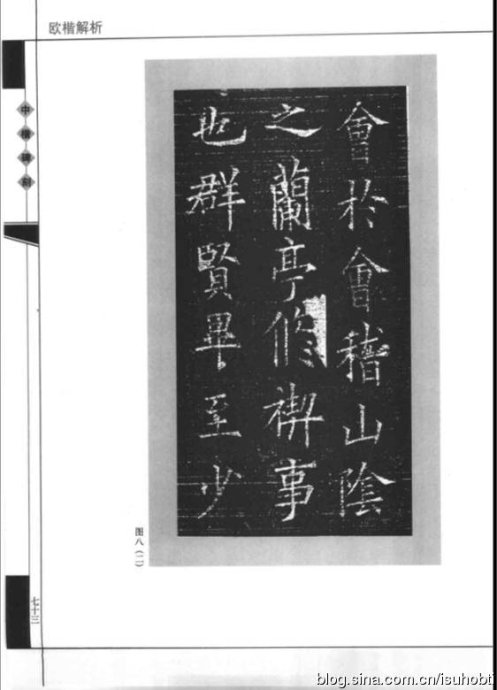 欧楷解析
會於會稽山陰
之蘭亭修禊事
也群賢畢至少
图八(二)
七十三
blog.sina.com.cn/isuhobt